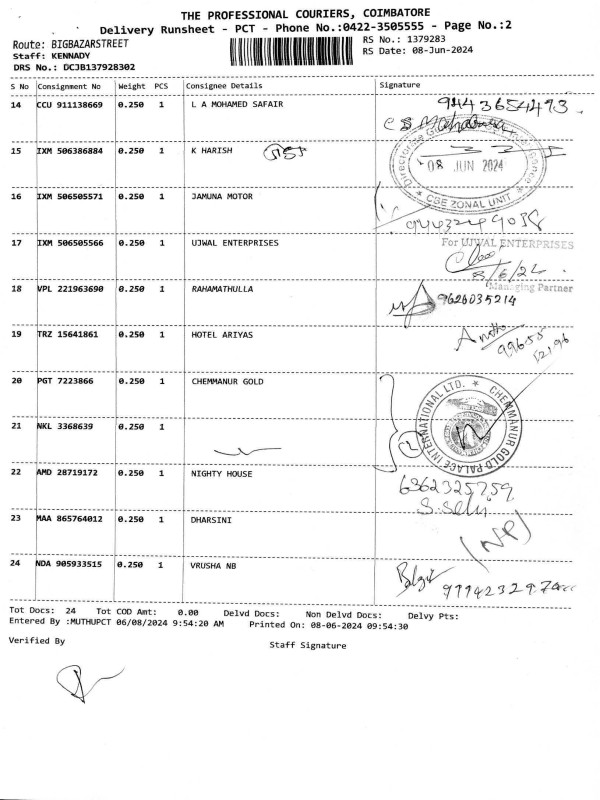 THE PROFESSIONAL COURIERS, COIMBATORE
Delivery Runsheet - PCT - Phone No.:0422-3505555 - Page No.:2
Route: BIGBAZARSTREET
RS No.: 1379283
Staff: KENNADY
RS Date: 08-Jun-2024
DRS No.: DCJB137928302
S No Consignment No Weight PCS Consignee Details Signature
14 CCU 911138669 0.250 1 L A MOHAMED SAFAIR
9443654473
15 IXM 506386884 0.250 1 K HARISH
08 JUN 2024
CBE ZONAL UNIT
16 IXM 506505571 0.250 1 JAMUNA MOTOR
17 IXM 506505566 0.250 1 UJWAL ENTERPRISES
For UJWAL ENTERPRISES
8/6/24
Managing Partner
18 VPL 221963690 0.250 1 RAHAMATHULLA
9626035214
19 TRZ 15641861 0.250 1 HOTEL ARIYAS
99655
12196
20 PGT 7223866 0.250 1 CHEMMANUR GOLD
CHEMMANUR GOLD PALACE INTERNATIONAL LTD.
21 NKL 3368639 0.250 1
2
22 AMD 28719172 0.250 1 NIGHTY HOUSE
6362325759
23 MAA 865764012 0.250 1 DHARSINI
(NP)
24 NDA 905933515 0.250 1 VRUSHA NB
Tot Docs: 24 Tot COD Amt: 0.00 Delvd Docs: Non Delvd Docs: Delvy Pts:
Entered By :MUTHUPCT 06/08/2024 9:54:20 AM Printed On: 08-06-2024 09:54:30
Verified By
Staff Signature